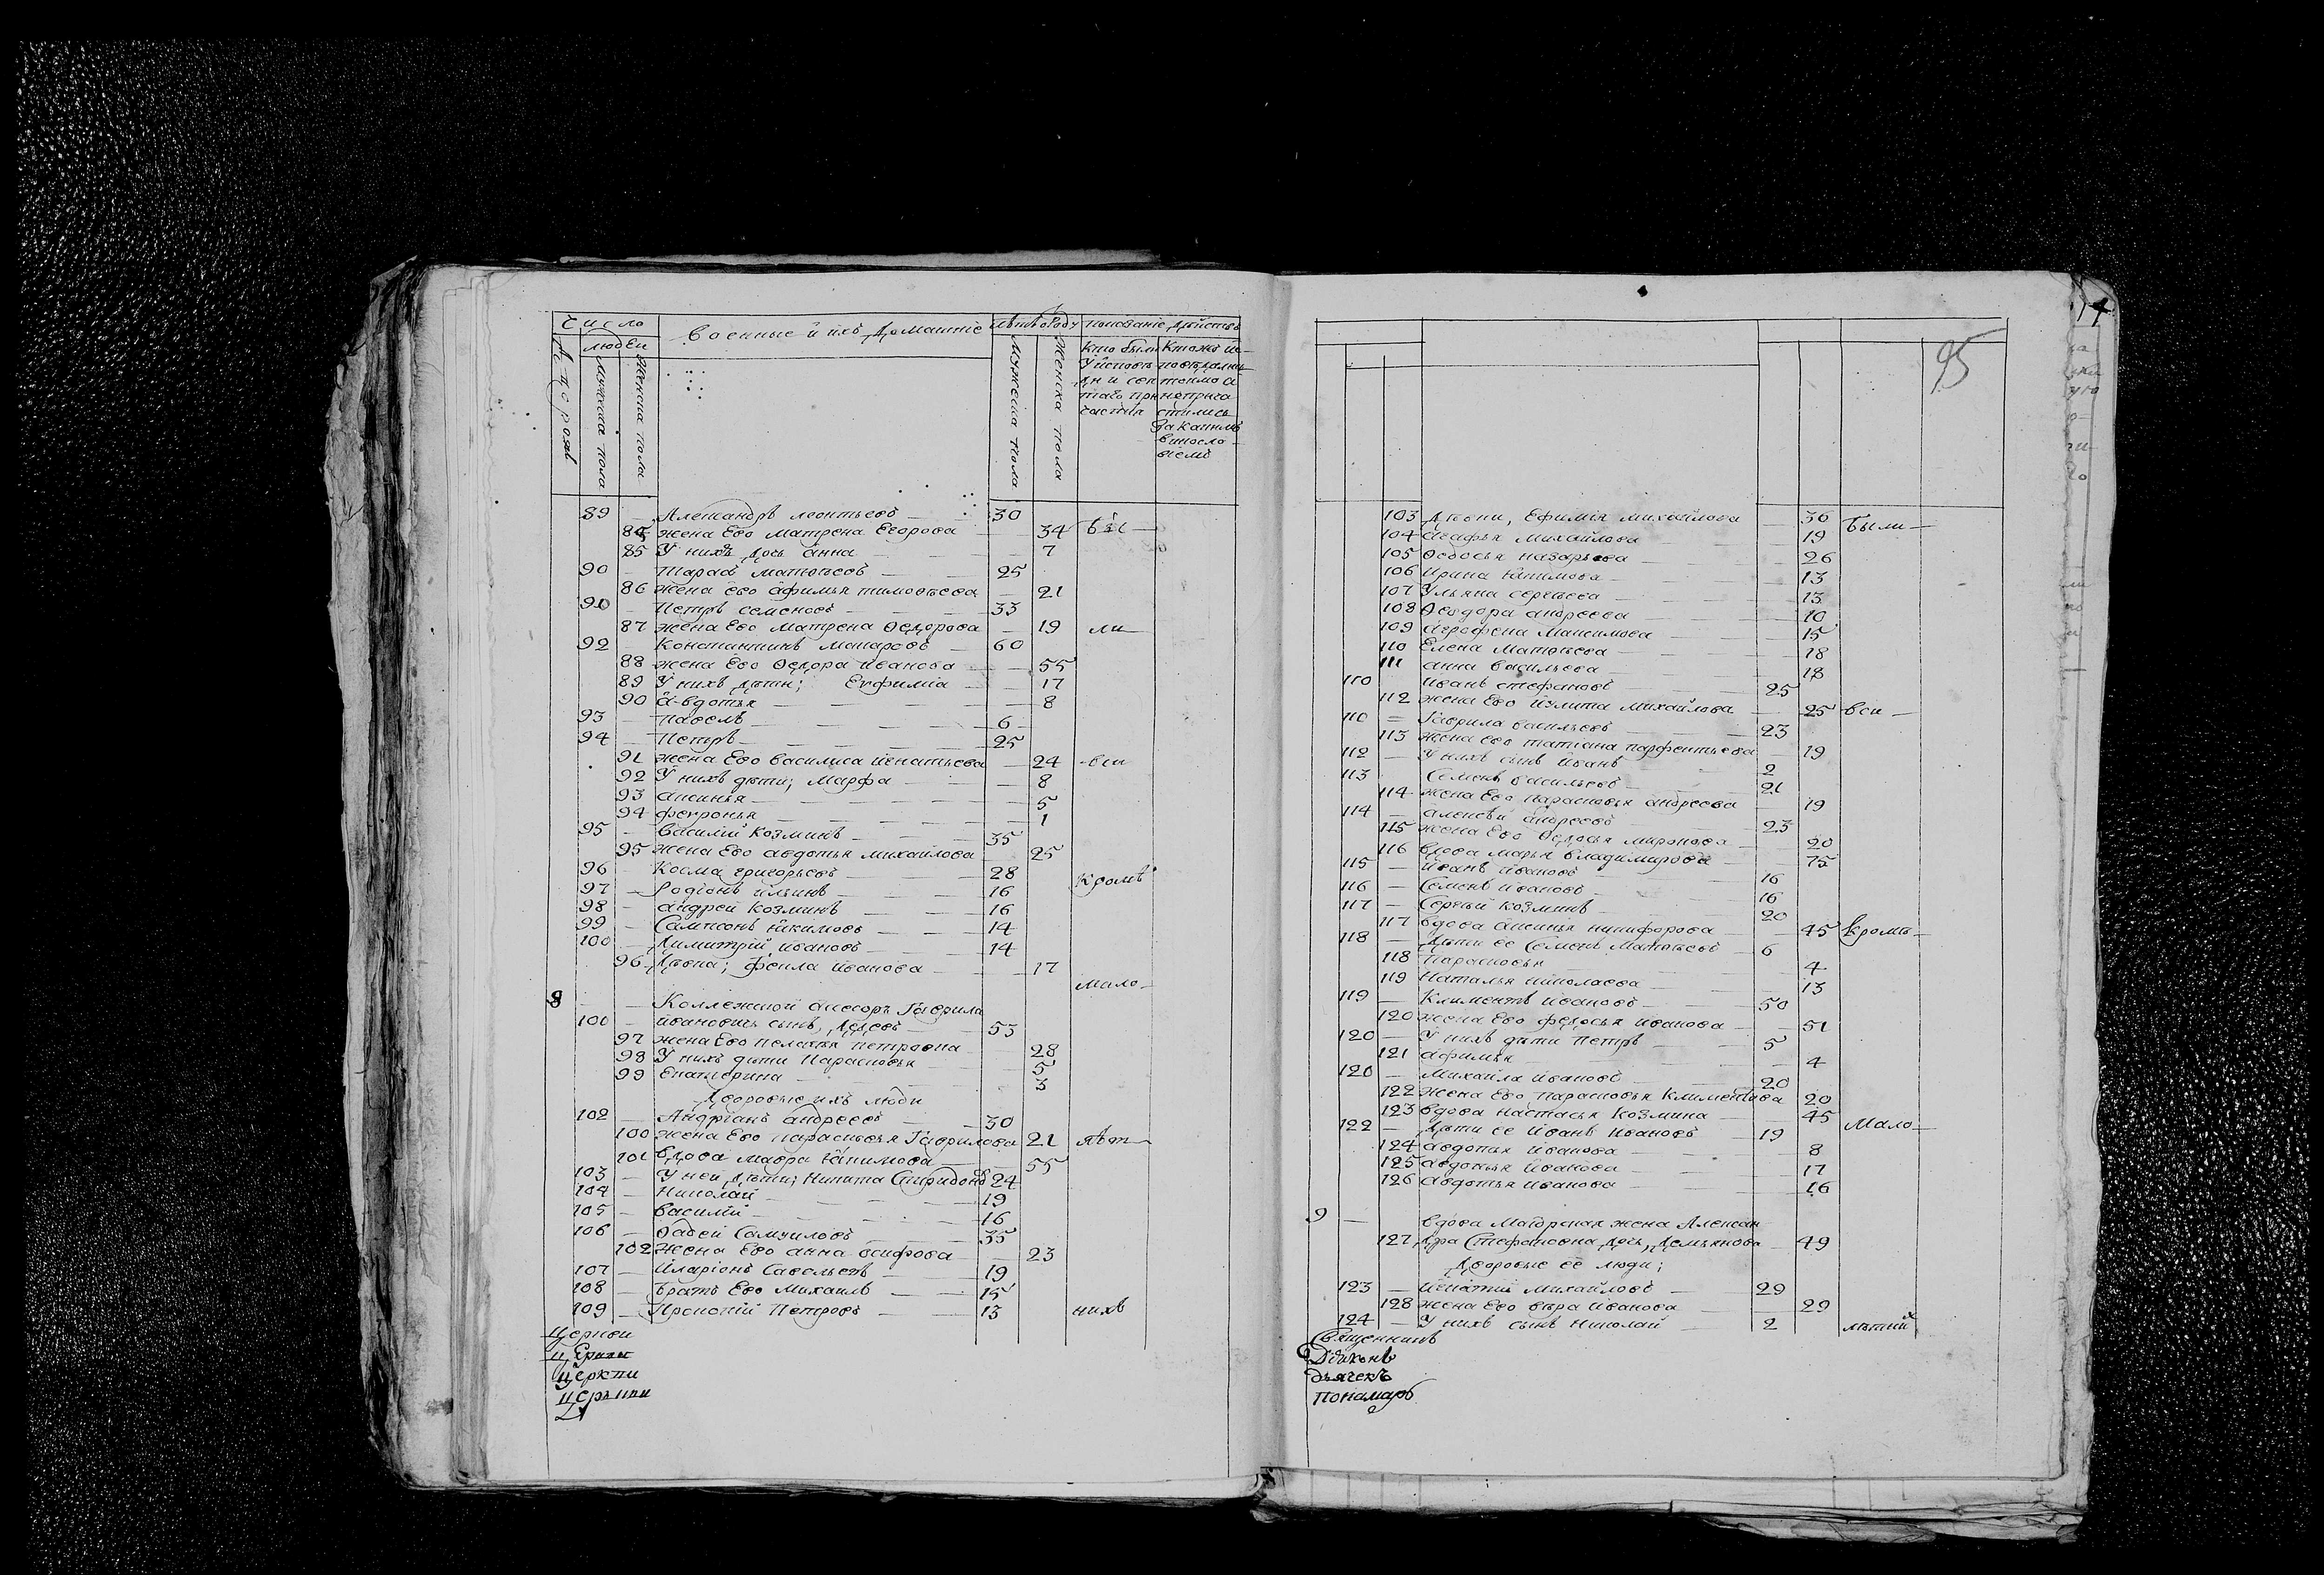 Число
людей
Военные и ихъ домашніе
лѣтъ отроду
показаніе дѣйства
мужеска пола
женска пола
мужеска пола
женска пола
кто были
89 — Александръ леонтьевъ — 30
84 жена Ево Матрена Егорова — 34
85 У нихъ дочь Анна — 7
90 — Тарасъ матвѣевъ — 25
86 жена ево Афимья тимофѣева — 21
90 — Петръ семеновъ — 33
87 жена Ево Матрена Ѳедорова — 19 ли
92 — Константинъ макаровъ — 60
88 жена Ево Ѳедора иванова — 55
89 У нихъ дѣти; Евфиміа — 17
90 Авдотья — 8
93 — Павелъ — 6
94 — Петръ — 25
91 жена Ево василиса игнатьева — 24 вси
92 У нихъ дѣти; Марфа — 8
93 Аксинья — 5
94 февронья — 1
95 — василій Козминъ — 35
95 жена Ево авдотья михайлова — 25
96 — Косма григорьевъ — 28 Кромѣ
97 — Родіонъ ильинъ — 16
98 — андрей Козминъ — 16
99 — Сампсонъ якимовъ — 14
100 — Димитрій ивановъ — 14
96 Дѣвка; Фекла иванова — 17
мало
8 — Коллежской асесоръ Гаврила
100 — ивановичь сынъ, дедевъ — 53
97 жена Ево пелагѣя петровна — 28
98 У нихъ дѣти Парасковья — 5
99 Екатерина — 3
Дворовые ихъ люди
102 — Андріанъ андреевъ — 30
100 жена Ево парасковья Гаврилова 21 лѣт
101 вдова мавра якимова — 55
103 — У ней дѣти; Никита Спиридоновъ 24
104 — Николай — 19
105 — василій — 16
106 — Ѳадей Самуиловъ — 35
102 жена Ево анна осифова — 23
107 — Иларіонъ Савельевъ — 19
108 — Братъ Ево Михаилъ — 15
109 — Прокопій Петровъ — 13 нихъ
Церкви
Церкви
Церкви
Церкви
95
103 Дѣвки, Ефимія михайлова 36 Были
104 Агафья Михайлова — 19
105 Ѳедосья назарьева — 26
106 Ирина якимова — 13
107 Ульяна сергѣева — 13
108 Ѳеодора андреева — 10
109 Аграфена Максимова — 15
110 Елена Матвѣева — 18
111 анна васильева — 18
110 иванъ стефановъ — 25
112 жена Ево Иулита михайлова — 25 вси
110 — Гаврила васильевъ — 23
113 жена ево татіана парфентьева — 19
112 — У нихъ сынъ иванъ — 2
113 Семенъ васильевъ — 21
114 жена Ево парасковья андреева — 19
114 — алексѣй андреевъ — 23
115 жена Ево Ѳедосья миронова — 20
116 вдова марья владимирова — 75
115 — иванъ ивановъ — 16
116 — Семенъ ивановъ — 16
117 — Сергѣй козминъ — 20
117 вдова аксинья никифорова — 45 кромѣ
118 — Дѣти ее Семенъ Матвѣевъ — 6
118 Парасковья — 4
119 Наталья николаева — 13
119 — Климентъ ивановъ — 50
120 жена Ево федосья иванова — 51
120 — У нихъ дѣти Петръ — 5
121 Афимья — 4
120 — Михайла ивановъ — 20
122 жена Ево парасковья Климентіева 20
123 вдова настасья Козмина — 45 Мало
122 — Дѣти ее иванъ ивановъ — 19
124 авдотья иванова — 8
125 авдотья иванова — 17
126 авдотья иванова — 16
9 — вдова Маіорская жена Алексан
127 дра Стефановна дочь, Демьянова — 49
Дворовые ее люди;
123 — Игнатій михайловъ — 29
128 жена Ево вѣра иванова — 29
124 — У нихъ сынъ николай — 2 лѣтний
Священникъ
Діаконъ
дьячекъ
пономарь